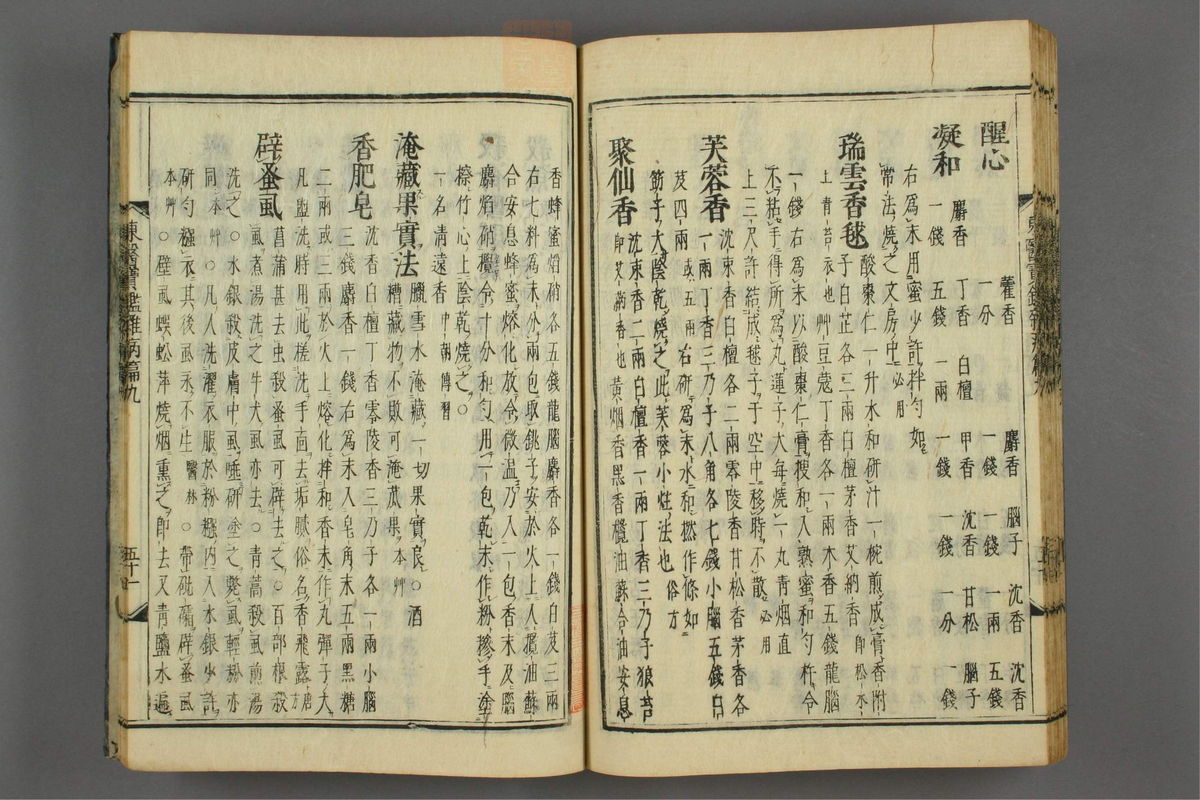 醒心 藿香 一分 麝香 一錢 腦子 一錢 沈香 一兩 沈香 五錢
凝和 麝香 一錢 丁香 五錢 白檀 一兩 甲香 一錢 沈香 一錢 甘松 一分 腦子 一錢
右爲末用蜜少許拌勻如
常法燒之文房中 必用
瑞雲香毬 酸棗仁一升水和硏汁一椀煎成膏香附
子白芷各三兩白檀茅香艾納香 卽松木
上靑苔衣也 草豆蔲丁香各一兩木香五錢龍腦
一錢右爲末以酸棗仁膏搜和入熟蜜和勻杵令
不粘手得所爲丸蓮子大每燒一丸靑烟直
上三尺許結成毬子于空中移時不散 必用
芙蓉香 沈束香白檀各二兩零陵香甘松香茅香各
一兩丁香三乃子八角各七錢小腦五錢白
芨四兩 或五兩 右硏爲末水和撚作條如
筯子大陰乾燒之此芙蓉小炷法也 俗方
聚仙香 沈束香二兩白檀香一兩丁香三乃子狼苔
卽艾蒳香也 黃烟香黑香欖油蘇合油安息
香蜂蜜焰硝各五錢龍腦麝香各一錢白芨三兩
右七料爲末分兩包取銚子安於火上入欖油蘇
合安息蜂蜜熔化放令微溫乃入一包香末及腦
麝焰硝攪令十分和勻用一包乾末作粉摻手塗
㯽竹心上陰乾燒之○
一名淸遠香 中朝傳習
淹藏果實法 臘雪水淹藏一切果實良○酒
糟藏物不敗可淹菰果 本艸
香肥皂 沈香白檀丁香零陵香三乃子各一兩小腦
三錢麝香一錢右爲末入皂角末五兩黑糖
二兩或三兩於火上熔化拌和香末作丸彈子大
凡盥洗時用此槎洗手面去垢膩俗名香飛露 唐方
辟蚤虱 菖蒲甚去虫殺蚤虱可辟去之○百部根殺
虱煮湯洗之牛犬虱亦去○靑蒿殺虱煎湯
洗之○水銀殺皮膚中虱唾硏塗之斃虱輕粉亦
同 本艸 ○凡人洗濯衣服於粉糨內入水銀少許
硏勻糨衣其後虱永不生 醫林 ○帶硫黃辟蚤虱
本艸 ○壁虱蜈蚣萍燒烟熏之卽去又靑鹽水遍
東醫寶鑑雜病篇九
五十一